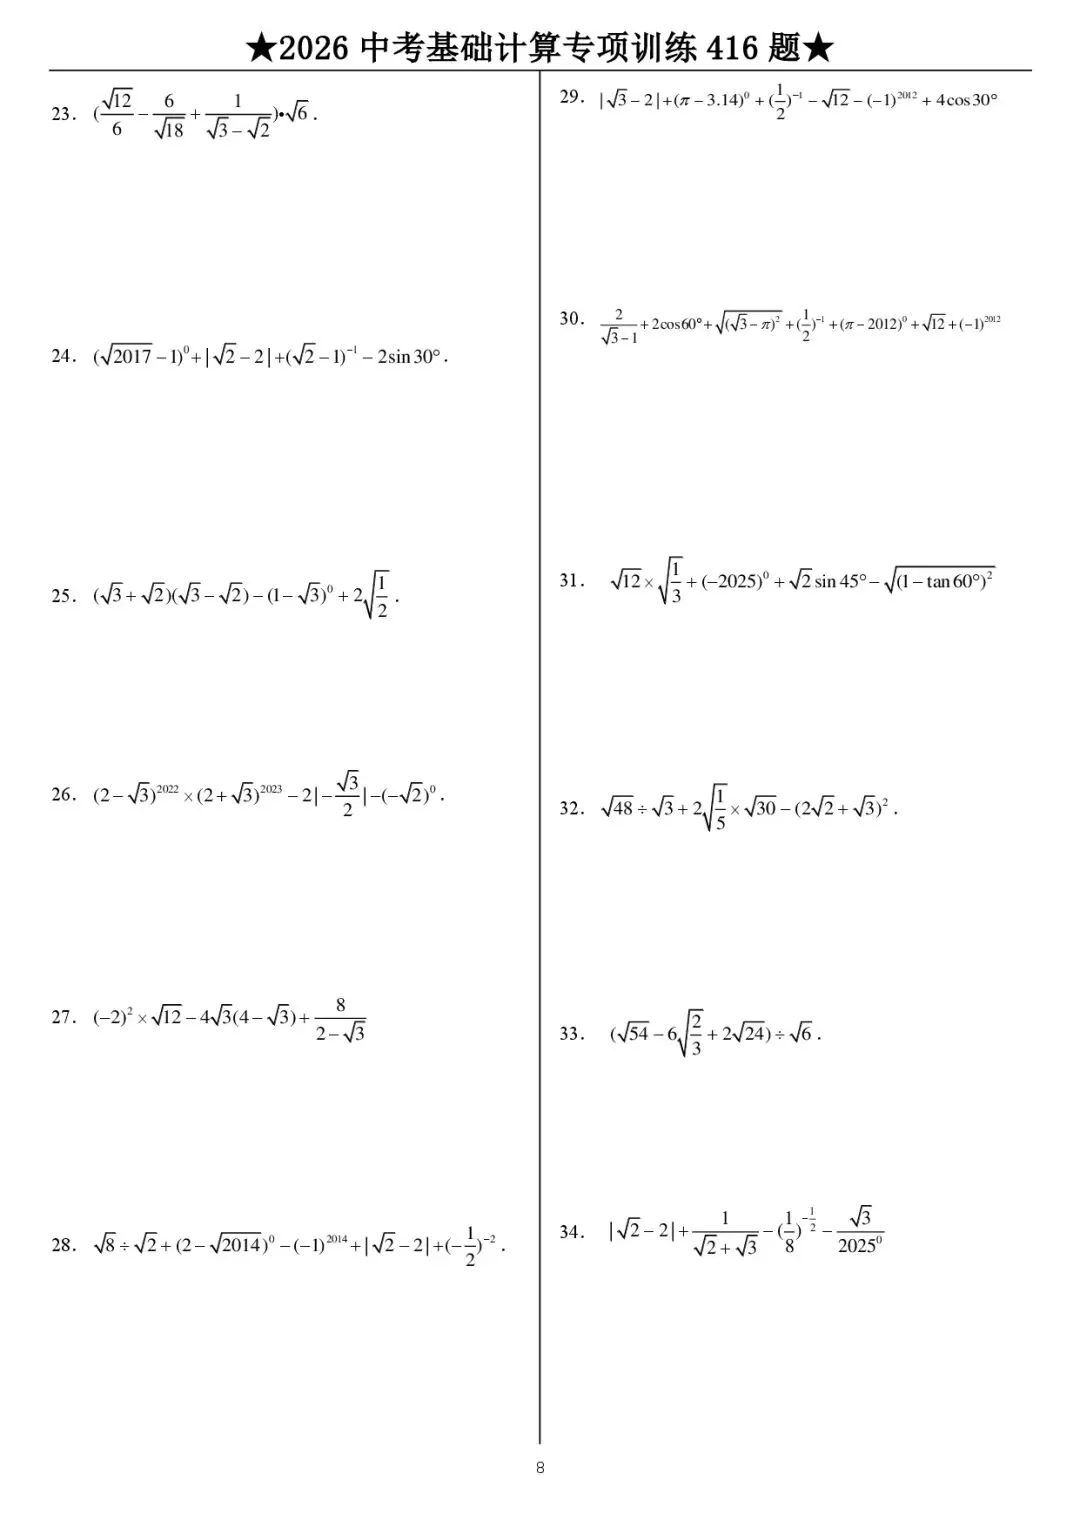 ★2026 中考基础计算专项训练 416 题★
23. (\frac{\sqrt{12}}{6}-\frac{6}{\sqrt{18}}+\frac{1}{\sqrt{3}-\sqrt{2}})•\sqrt{6}.
24. (\sqrt{2017}-1)^0+|\sqrt{2}-2|+(\sqrt{2}-1)^{-1}-2\sin 30°.
25. (\sqrt{3}+\sqrt{2})(\sqrt{3}-\sqrt{2})-(1-\sqrt{3})^0+2\sqrt{\frac{1}{2}}.
26. (2-\sqrt{3})^{2022}×(2+\sqrt{3})^{2023}-2|-\frac{\sqrt{3}}{2}|-(-\sqrt{2})^0.
27. (-2)^2×\sqrt{12}-4\sqrt{3}(4-\sqrt{3})+\frac{8}{2-\sqrt{3}}
28. \sqrt{8}÷\sqrt{2}+(2-\sqrt{2014})^0-(-1)^{2014}+|\sqrt{2}-2|+(-\frac{1}{2})^{-2}.
29. |\sqrt{3}-2|+(π-3.14)^0+(\frac{1}{2})^{-1}-\sqrt{12}-(-1)^{2012}+4\cos 30°
30. \frac{2}{\sqrt{3}-1}+2\cos 60°+\sqrt{(\sqrt{3}-π)^2}+(\frac{1}{2})^{-1}+(π-2012)^0+\sqrt{12}+(-1)^{2012}
31. \sqrt{12}×\sqrt{\frac{1}{3}}+(-2025)^0+\sqrt{2}\sin 45°-\sqrt{(1-\tan 60°)^2}
32. \sqrt{48}÷\sqrt{3}+2\sqrt{\frac{1}{5}}×\sqrt{30}-(2\sqrt{2}+\sqrt{3})^2.
33. (\sqrt{54}-6\sqrt{\frac{2}{3}}+2\sqrt{24})÷\sqrt{6}.
34. |\sqrt{2}-2|+\frac{1}{\sqrt{2}+\sqrt{3}}-(\frac{1}{8})^{-\frac{1}{2}}-\frac{\sqrt{3}}{2025^0}
8